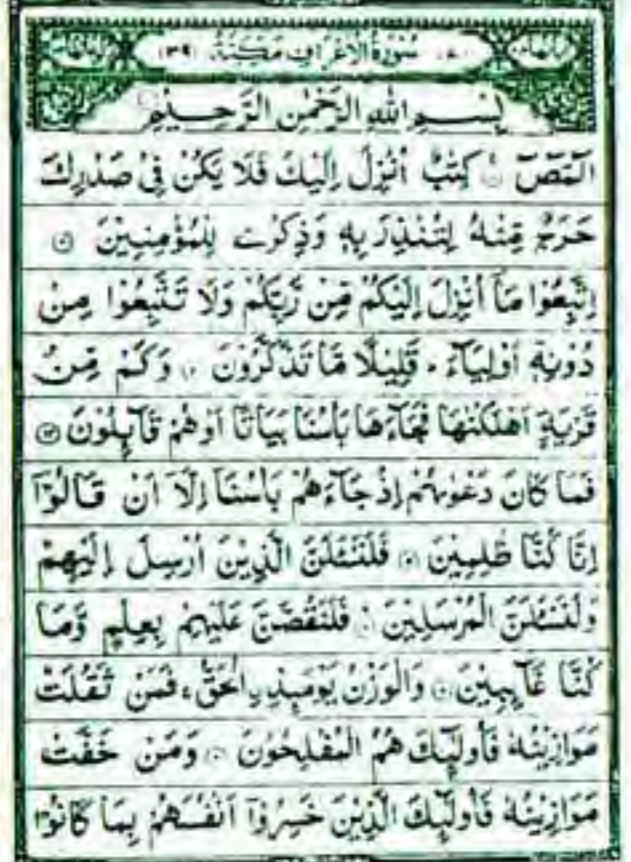 سُورَةُ الْأَعْرَافِ مَكِّيَّةٌ (٣٩)
بِسْمِ اللهِ الرَّحْمٰنِ الرَّحِيْمِ
الٓمّٓصٓ كِتٰبٌ أُنْزِلَ إِلَيْكَ فَلَا يَكُنْ فِيْ صَدْرِكَ
حَرَجٌ مِّنْهُ لِتُنْذِرَ بِهٖ وَذِكْرٰى لِلْمُؤْمِنِيْنَ
اِتَّبِعُوْا مَآ أُنْزِلَ إِلَيْكُمْ مِّنْ رَّبِّكُمْ وَلَا تَتَّبِعُوْا مِنْ
دُوْنِهٖٓ أَوْلِيَآءَ قَلِيْلًا مَّا تَذَكَّرُوْنَ وَكَمْ مِّنْ
قَرْيَةٍ أَهْلَكْنٰهَا فَجَآءَهَا بَأْسُنَا بَيَاتًا أَوْهُمْ قَآئِلُوْنَ
فَمَا كَانَ دَعْوٰىهُمْ إِذْ جَآءَهُمْ بَأْسُنَآ إِلَّآ أَنْ قَالُوْٓا
إِنَّا كُنَّا ظٰلِمِيْنَ فَلَنَسْئَلَنَّ الَّذِيْنَ أُرْسِلَ إِلَيْهِمْ
وَلَنَسْئَلَنَّ الْمُرْسَلِيْنَ فَلَنَقُصَّنَّ عَلَيْهِمْ بِعِلْمٍ وَّمَا
كُنَّا غَآئِبِيْنَ وَالْوَزْنُ يَوْمَئِذِ ۨالْحَقُّ فَمَنْ ثَقُلَتْ
مَوَازِيْنُهٗ فَأُولٰٓئِكَ هُمُ الْمُفْلِحُوْنَ وَمَنْ خَفَّتْ
مَوَازِيْنُهٗ فَأُولٰٓئِكَ الَّذِيْنَ خَسِرُوْٓا أَنْفُسَهُمْ بِمَا كَانُوْا